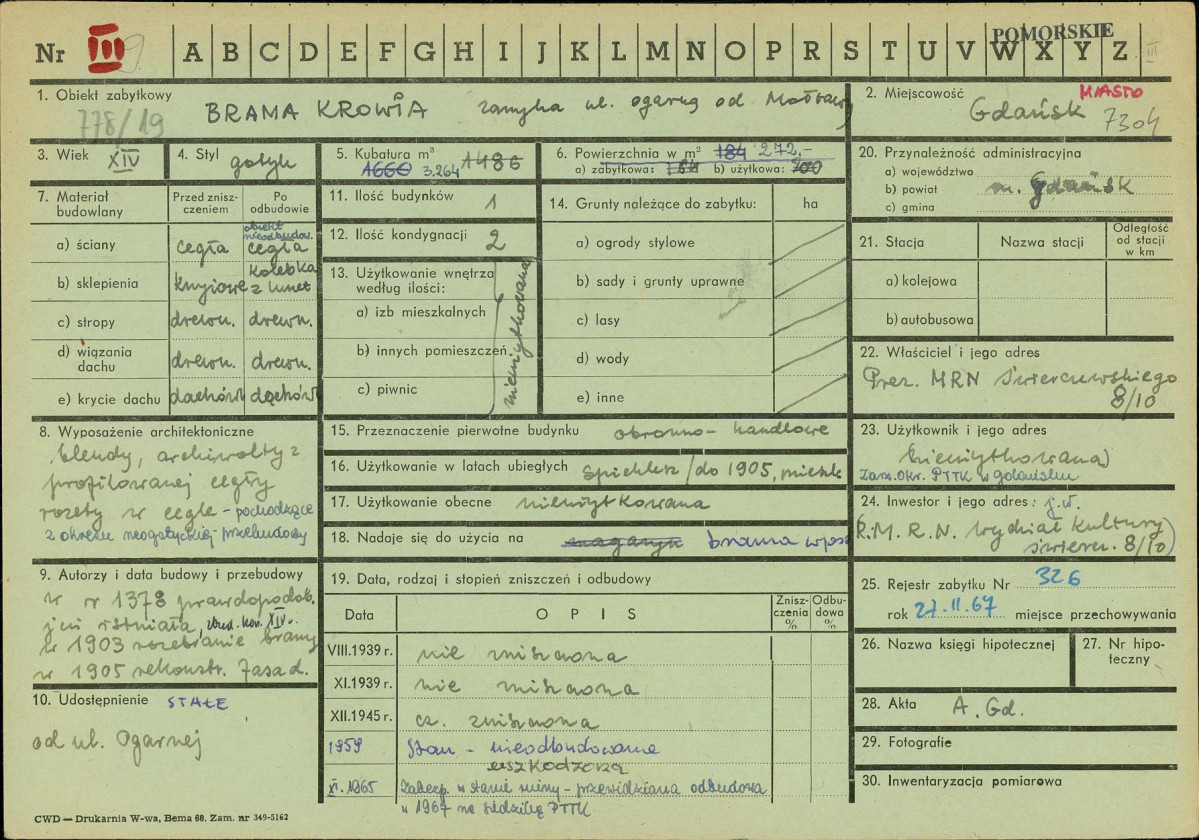 Nr III A B C D E F G H I J K L M N O P R S T U V W X Y Z
POMORSKIE
III
1. Obiekt zabytkowy
BRAMA KROWIA zamyka ul. ogarną od Motławy
778/19
2. Miejscowość MIASTO
Gdańsk
7304
3. Wiek XIV
4. Styl gotyk
5. Kubatura m³
1660 3.264 1486
6. Powierzchnia w m² 184 272,-
a) zabytkowa: 184 b) użytkowa: 200
7. Materiał budowlany
Przed zniszczeniem
Po odbudowie
obiekt nieodbudow.
a) ściany cegła cegła
b) sklepienia krzyżowe kolebka z lunet
c) stropy drewn. drewn.
d) wiązania dachu drewn. drewn.
e) krycie dachu dachówk dachówk
8. Wyposażenie architektoniczne
blendy, archiwolty z
profilowanej cegły
rozety w cegle - pochodzące
z okresu neogotyckiej przebudowy
9. Autorzy i data budowy i przebudowy
w r 1378 prawdopodob.
już istniała, zbud. kon. XIV w.
w 1903 rozebranie bramy
w 1905 rekonstr. fasad.
10. Udostępnienie STAŁE
od ul. Ogarnej
11. Ilość budynków 1
12. Ilość kondygnacji 2
13. Użytkowanie wnętrza
według ilości:
a) izb mieszkalnych
b) innych pomieszczeń
c) piwnic
nieużytkowana
14. Grunty należące do zabytku: ha
a) ogrody stylowe
b) sady i grunty uprawne
c) lasy
d) wody
e) inne
15. Przeznaczenie pierwotne budynku obronno-handlowe
16. Użytkowanie w latach ubiegłych spichlerz/do 1905, mieszk
17. Użytkowanie obecne nieużytkowana
18. Nadaje się do użycia na magazyn brama
19. Data, rodzaj i stopień zniszczeń i odbudowy
Data OPIS Zniszczenia % Odbudowa %
VIII.1939 r. nie zniszczona
XI.1939 r. nie zniszczona
XII.1945 r. cz. zniszczona
1959 Stan - nieodbudowane
uszkodzona
XI.1965 Zabezp. w stanie ruiny - przewidziana odbudowa
w 1967 na siedzibę PTTK
20. Przynależność administracyjna
a) województwo
b) powiat m. Gdańsk
c) gmina
21. Stacja Nazwa stacji Odległość od stacji w km
a) kolejowa
b) autobusowa
22. Właściciel i jego adres
Prez. MRN Świerczewskiego
8/10
23. Użytkownik i jego adres
nieużytkowana)
Zarz. Okr. PTTK w Gdańsku
24. Inwestor i jego adres: j.w.
P.M.R.N. Wydział Kultury
Świercz. 8/10)
25. Rejestr zabytku Nr 326
rok 27.II.67 miejsce przechowywania
26. Nazwa księgi hipotecznej
27. Nr hipoteczny
28. Akta A. Gd.
29. Fotografie
30. Inwentaryzacja pomiarowa
CWD — Drukarnia W-wa, Bema 60. Zam. nr 349-5162